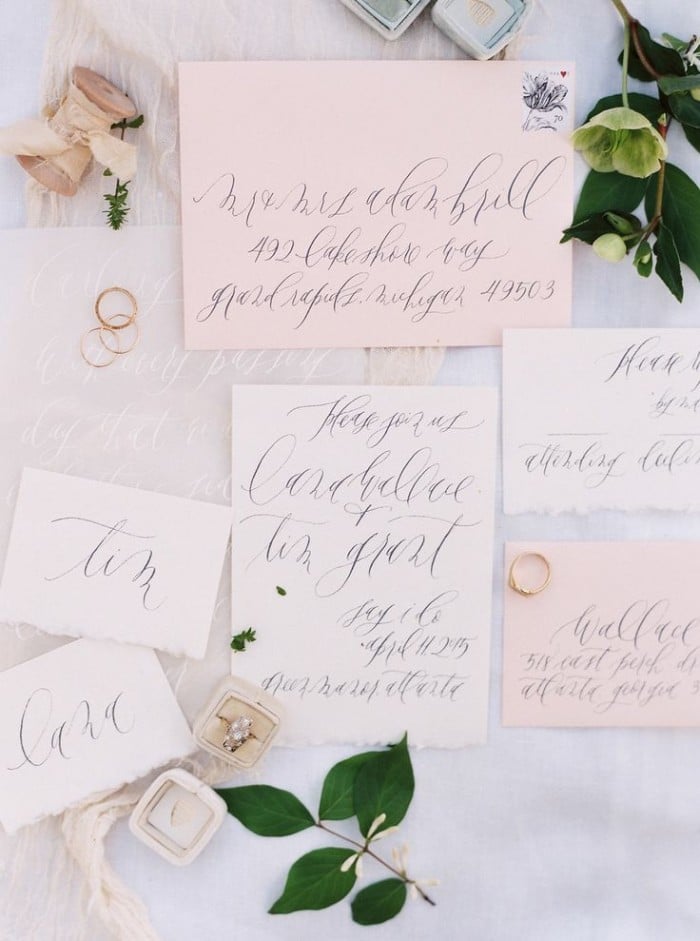 70
mr & mrs adam brill
492 lakeshore way
grand rapids, michigan 49503
with every passing
day that
Please join us
lana wallace
+
tim grant
say i do
april 11 2015
green manor atlanta
Please
by
attending
tim
lana
wallace
518 east perch dr
atlanta georgia 3